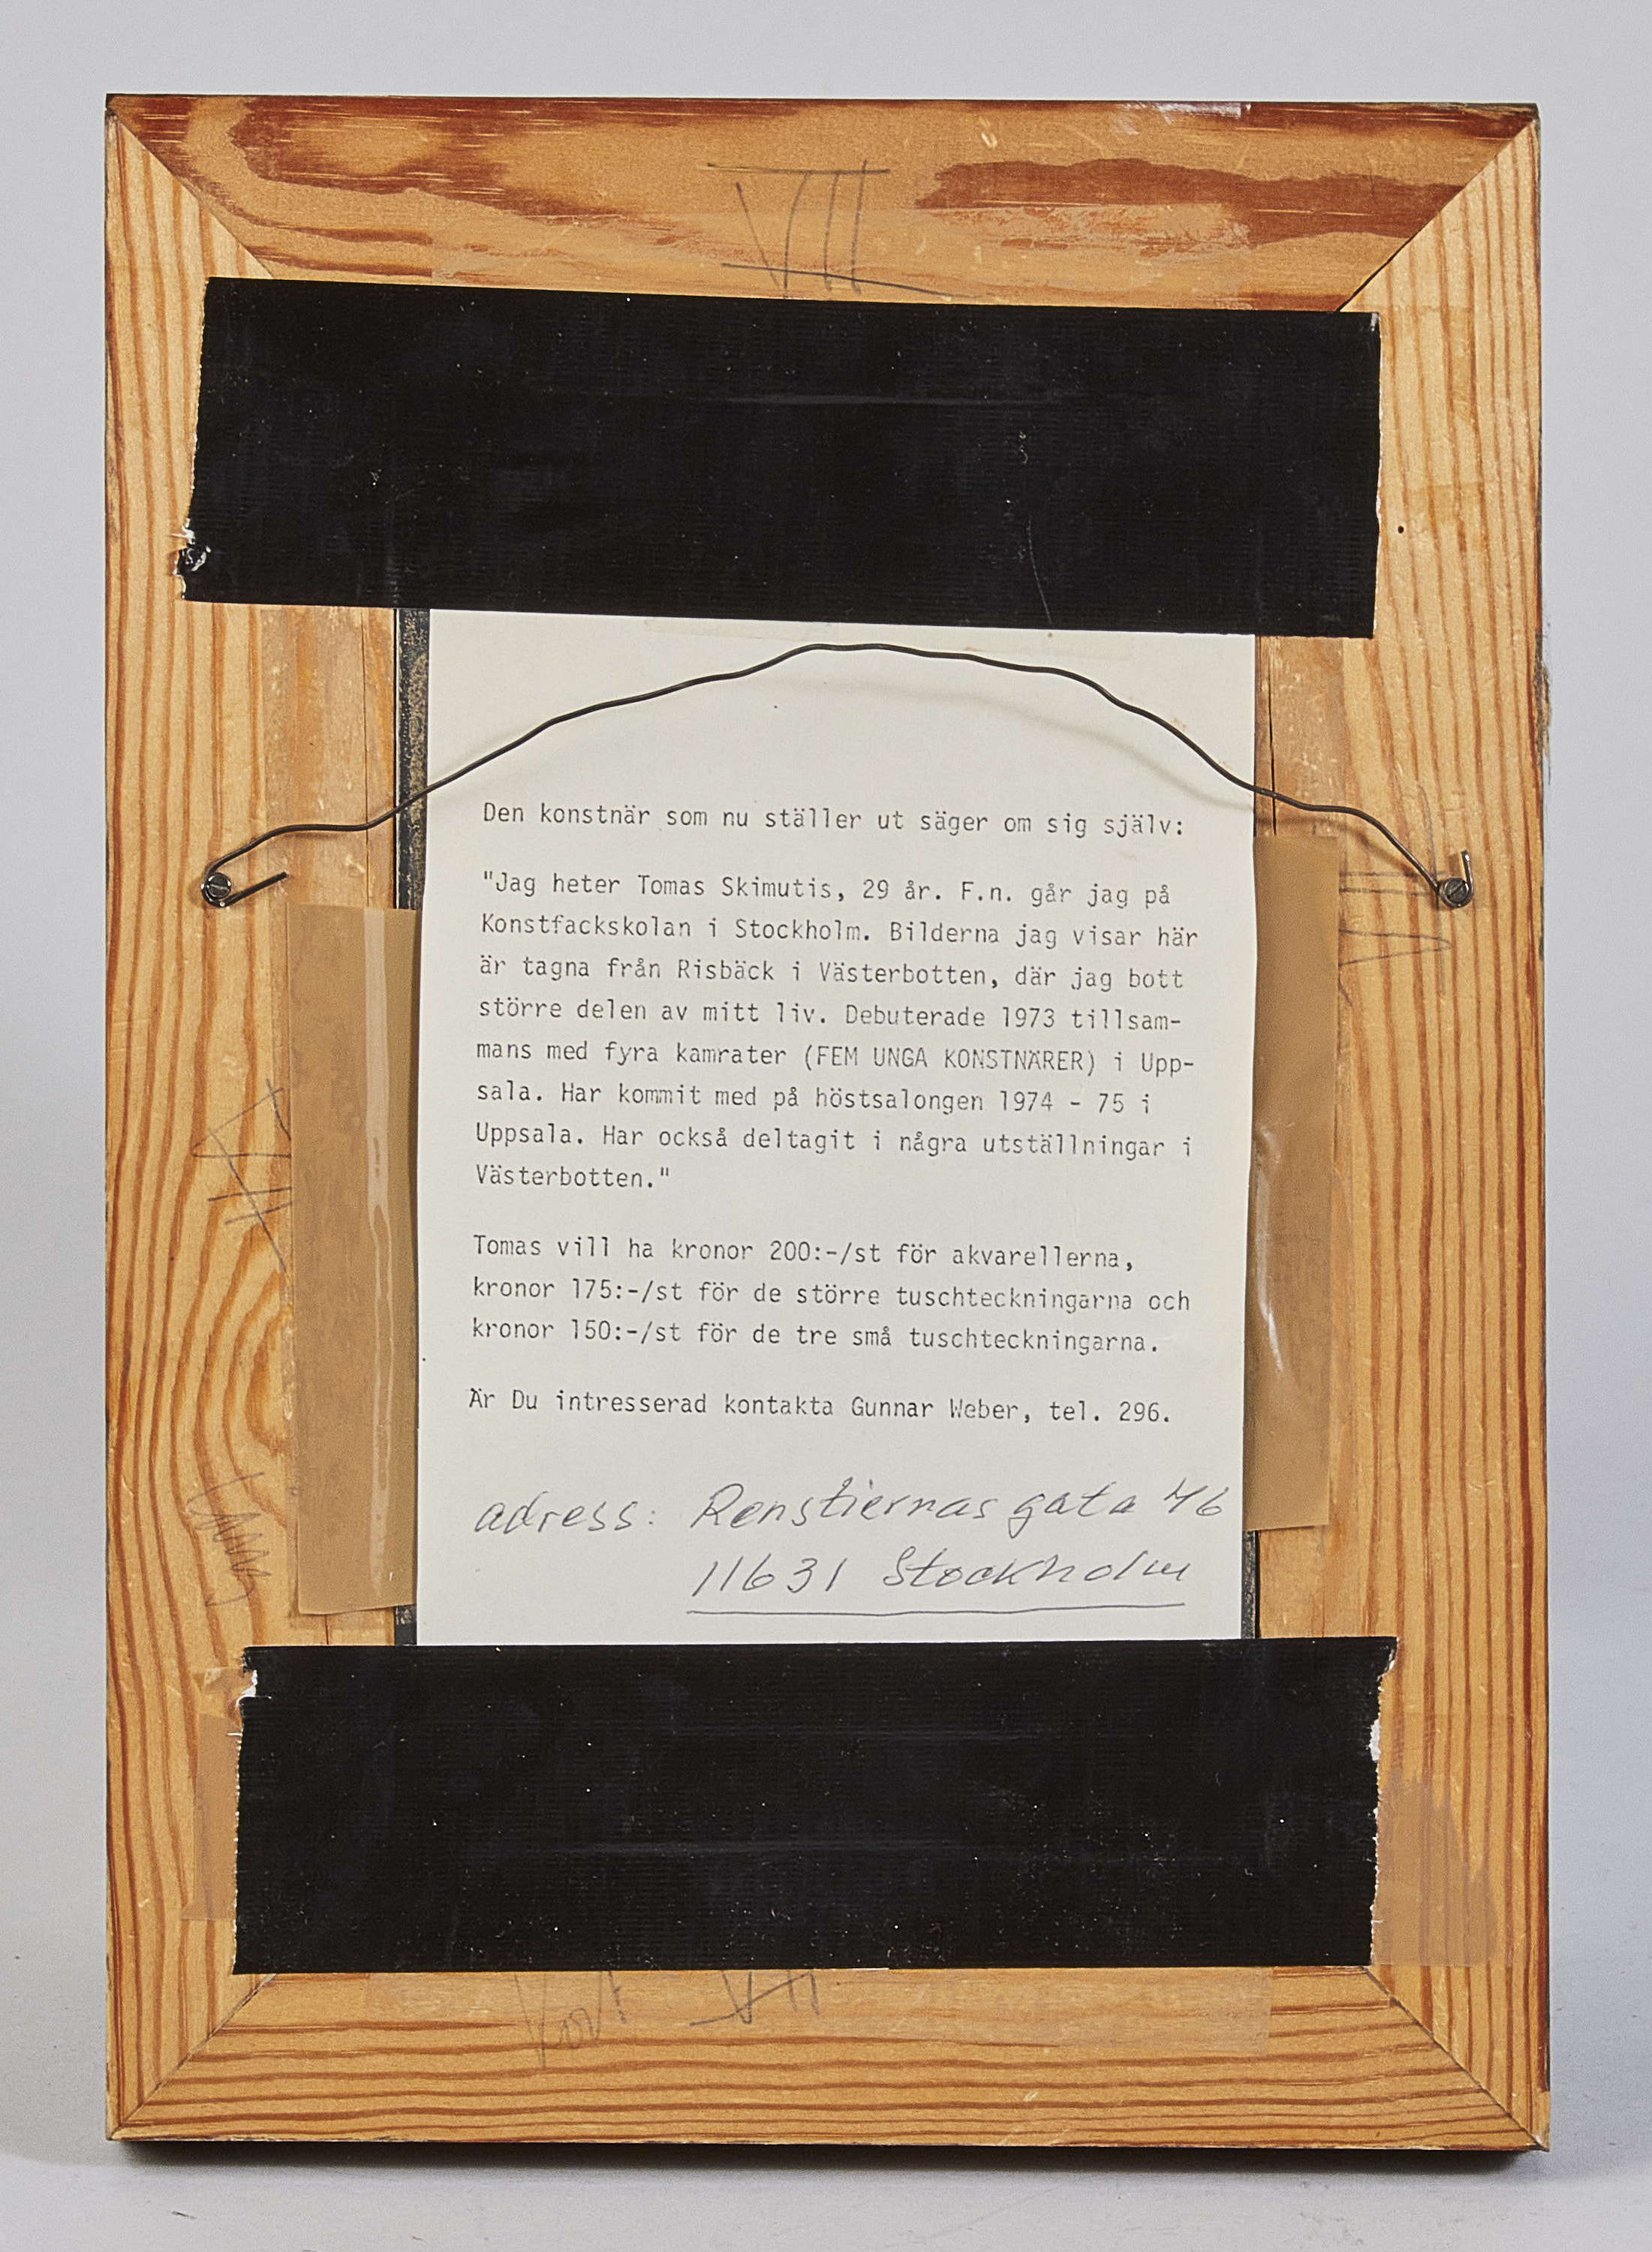 VII
Den konstnär som nu ställer ut säger om sig själv:
"Jag heter Tomas Skimutis, 29 år. F.n. går jag på
Konstfackskolan i Stockholm. Bilderna jag visar här
är tagna från Risbäck i Västerbotten, där jag bott
större delen av mitt liv. Debuterade 1973 tillsam-
mans med fyra kamrater (FEM UNGA KONSTNÄRER) i Upp-
sala. Har kommit med på höstsalongen 1974 - 75 i
Uppsala. Har också deltagit i några utställningar i
Västerbotten."
Tomas vill ha kronor 200:-/st för akvarellerna,
kronor 175:-/st för de större tuschteckningarna och
kronor 150:-/st för de tre små tuschteckningarna.
Är Du intresserad kontakta Gunnar Weber, tel. 296.
adress: Renstiernas gata 46
11631 Stockholm
VII